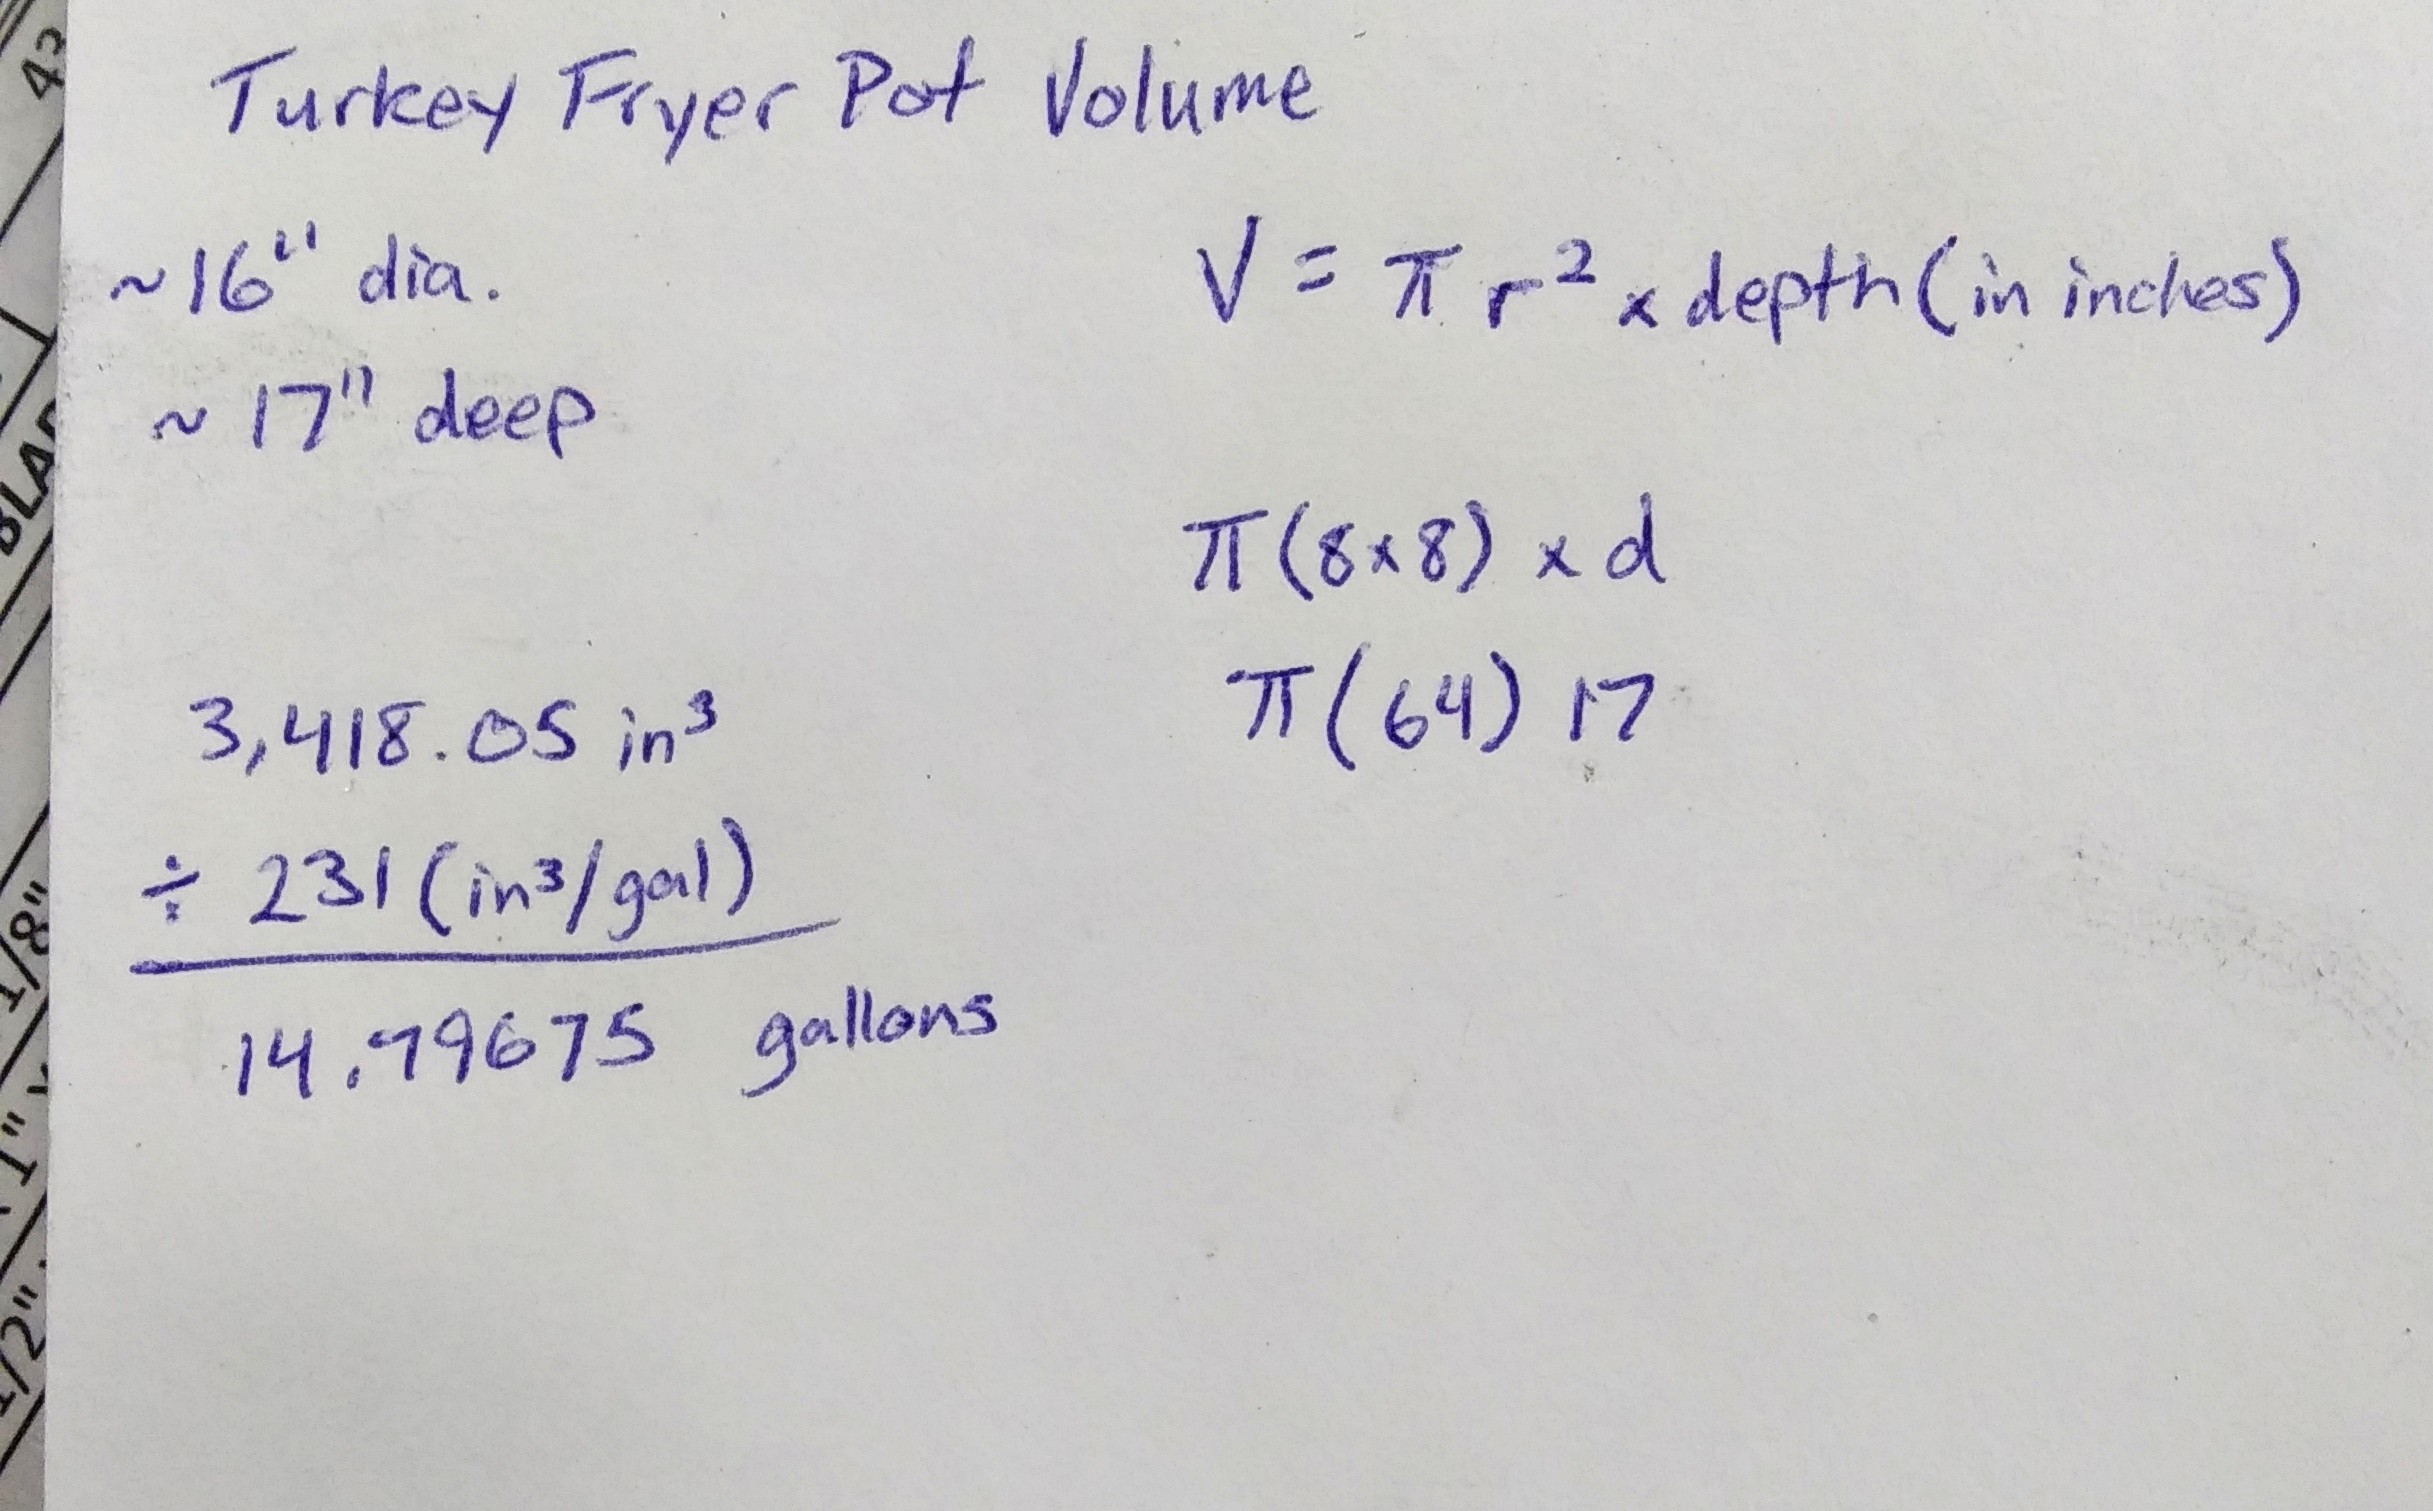 Turkey Fryer Pot Volume
~16" dia.
~17" deep
V = π r² x depth (in inches)
π(8x8) x d
π(64) 17
3,418.05 in³
÷ 231 (in³/gal)
14.79675 gallons
43
BLA
1/8"
1"
1/2"